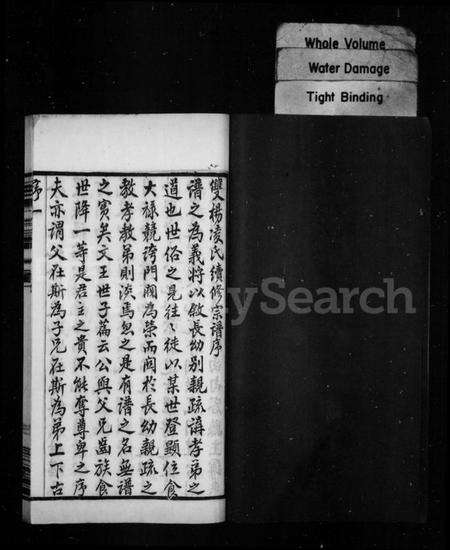 Whole Volume
Water Damage
Tight Binding
雙楊凌氏續修宗譜序
譜之為義將以敘長幼別親疏講孝弟之
道也世俗之見往々徒以某世登顯位食
大祿競誇門閥為榮而罔於長幼親疏之
教孝教弟則淡焉忽之是有譜之名無譜
之實矣文王世子篇云公與父兄齒族食
世降一等是君主之貴不能奪尊卑之序
夫亦謂父在斯為子兄在斯為弟上下古
序一
MySearch